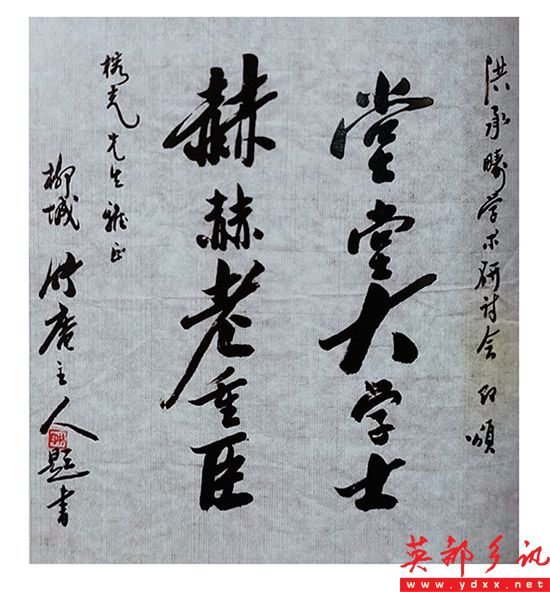 洪承畴学术研讨会 颂
堂堂大学士
赫赫老重臣
先生雅正
柳城竹庵主人题書
英都乡讯
www.ydxx.net